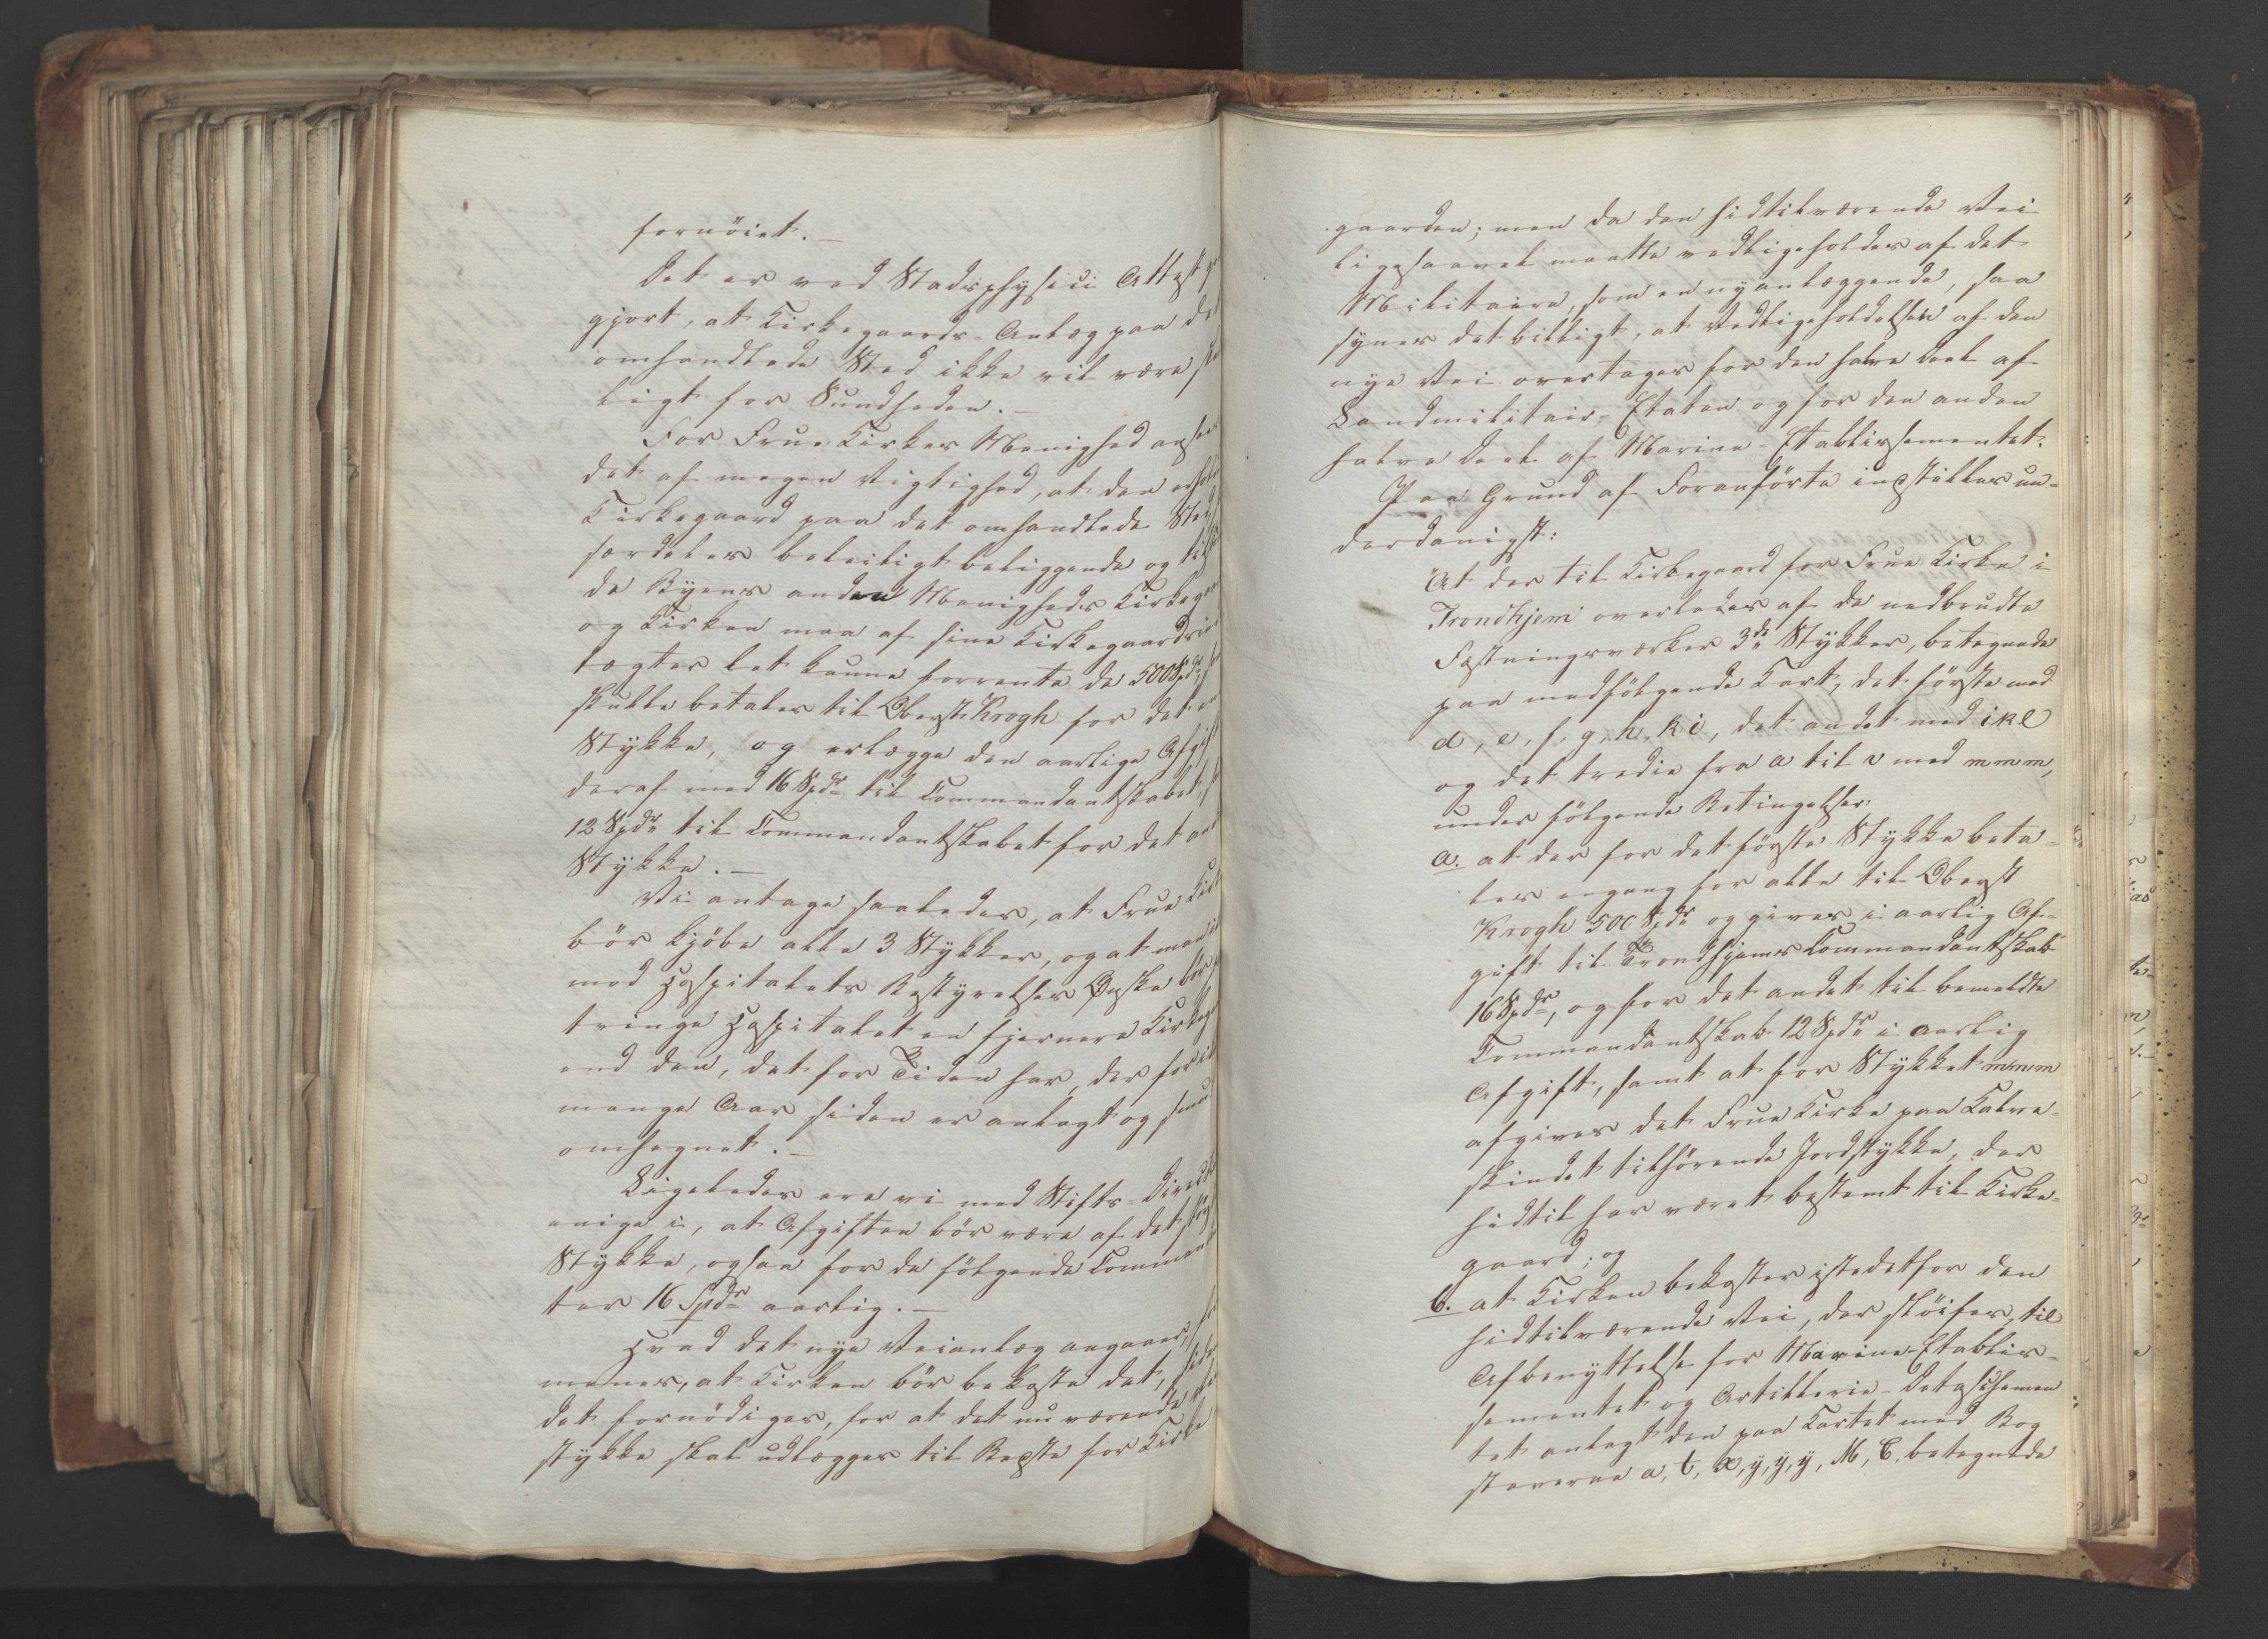 fornöiet.—
Det er ved Stadsphysici Attest
gjort, at Kirkegaards-Anlæg paa
omhandlede Sted ikke vil være
ligt for Sundheden.—
For Frue Kirkes Menighed
det af megen Vigtighed, at den
Kirkegaard paa det omhandlede Sted,
særdeles beleiligt beliggende og
de Byens anden Menigheds
og Kirken maa af sine
tægter let kunne forrente de 500 Spdr,
skulle betales til Oberst Krogh for det
Stykke, og erlægge den aarlige
deraf med 16 Spdr til Commandantskabet,
12 Spdr til Commandantskabet for det
Stykke.—
Vi antage saaledes, at Frue
bör kjöbe alle 3 Stykker, og at man
mod Hospitalets Bestyrelses Önske bör
tvinge Hospitalet en fjernere
end den, det for Tiden har, der for
mange Aar siden er anlagt og
omhegnet.—
Ligeledes ere vi med Stifts-
enige i, at Afgiften bör være af det
Stykke, ogsaa for de fölgende
ter 16 Spdr aarlig.—
Hvad det nye Veianlæg angaaer,
menes, at Kirken bör bekoste det,
det fornödiges, for at det nu værende
stykke skal udlægges til Bedste for
gaarden; men da den hidtilværende Vei
ligesaavel maatte vedligeholdes af det
Militaire, som en nyanlæggende, saa
synes det billigt, at Vedligeholdelsen af den
nye Vei overtages for den halve Deel af
Landmilitair-Etaten og for den anden
halve Deel af Marine-Etablissementet.
Paa Grund af Foranförte indstilles un-
derdanigst:
At der til Kirkegaard for Frue Kirke i
Trondhjem overlades af de nedbrudte
Fæstningsværker 3de Stykker, betegnede
paa medfölgende Kart, det förste med
d, e, f, g, h, k i, det andet med i k l
og det tredie fra a til v med m m m,
under fölgende Betingelser:
a. at der for det förste Stykke beta-
les engang for alle til Oberst
Krogh 500 Spdr og gives i aarlig Af-
gift til Trondhjems Commandantskab
16 Spdr, og for det andet til bemeldte
Commandantskab 12 Spdr i aarlig
Afgift, samt at for Stykket m m m
afgives det Frue Kirke paa Kalve-
skindet tilhörende Jordstykke, der
hidtil har været bestemt til Kirke-
gaard; og
b. at Kirken bekoster istedetfor den
hidtilværende Vei, der slöifes, til
Afbenyttelse for Marine-Etablis-
sementet og Artillerie-Detaschemen
tet anlagt den paa Kartet med Bog
staverne a, t, x, y, y, y, M, C. betegnede